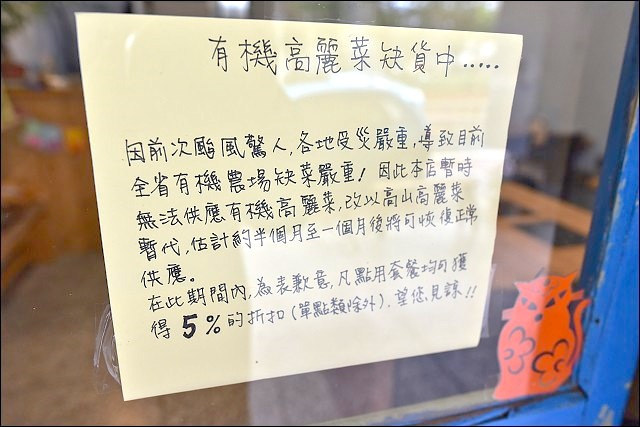 有機高麗菜缺貨中.....
因前次颱風驚人,各地受災嚴重,導致目前
全省有機農場缺菜嚴重!因此本店暫時
無法供應有機高麗菜,改以高山高麗菜
暫代,估計約半個月至一個月後將可恢復正常
供應。
在此期間內,為表歉意,凡點用套餐均可獲
得5%的折扣(單點類除外),望您見諒!!